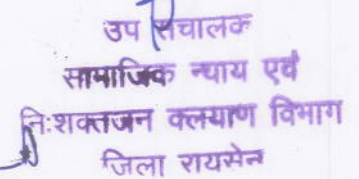 उप संचालक
सामाजिक न्याय एवं
निःशक्तजन क्लयाण विभाग
जिला रायसेन